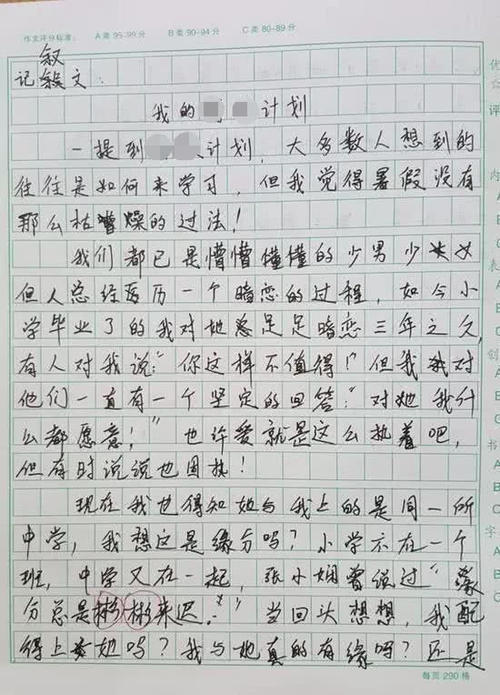 作文评分标准： A类95-99分 B类90-94分 C类80-89分
叙
记文：
我的计划
一提到计划，大多数人想到的
往往是如何来学习，但我觉得暑假没有
那么枯燥的过法！
我们都已是懵懵懂懂的少男少女
但人总经历一个暗恋的过程，如今小
学毕业了的我对她足足暗恋三年之久
有人对我说：“你这样不值得！”但我对
他们一直有一个坚定的回答：“对她我什
么都愿意！”也许爱就是这么执着吧，
但有时说说也困扰！
现在我也得知她与我上的是同一所
中学，我想这是缘分吗？小学不在一个
班，中学又在一起，张小娴曾说过“缘
分总是彬彬来迟。”当回头想想，我配
得上她吗？我与她真的有缘吗？还是
每页290格
优
☆
评
内
A
B
C
表
A
创
A
书
A
B
C
字